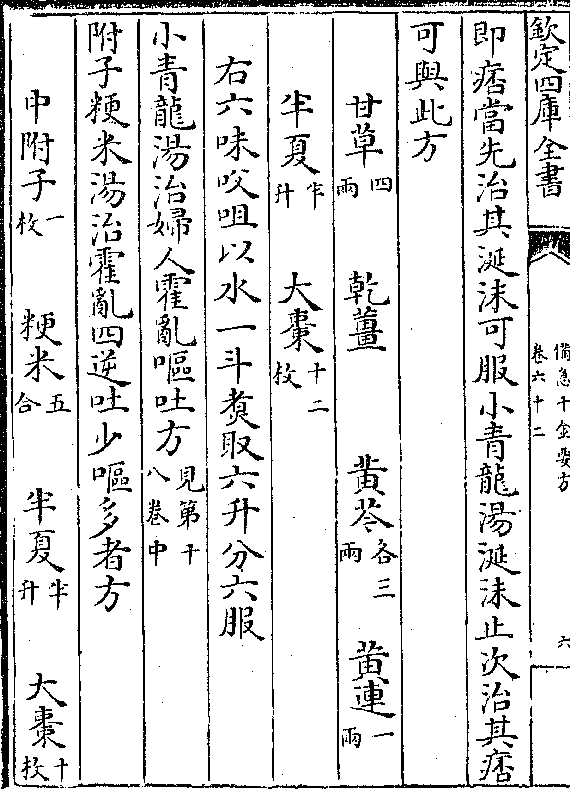 欽定四庫全書
備急千金要方
卷六十二
六
即痞當先治其涎沫可服小青龍湯涎沫止次治其痞
可與此方
甘草四兩 乾薑 黄芩各三兩 黄連一兩
半夏半升 大棗十二枚
右六味㕮咀以水一斗煑取六升分六服
小青龍湯治婦人霍亂嘔吐方見第十八卷中
附子粳米湯治霍亂四逆吐少嘔多者方
中附子一枚 粳米五合 半夏半升 大棗十枚